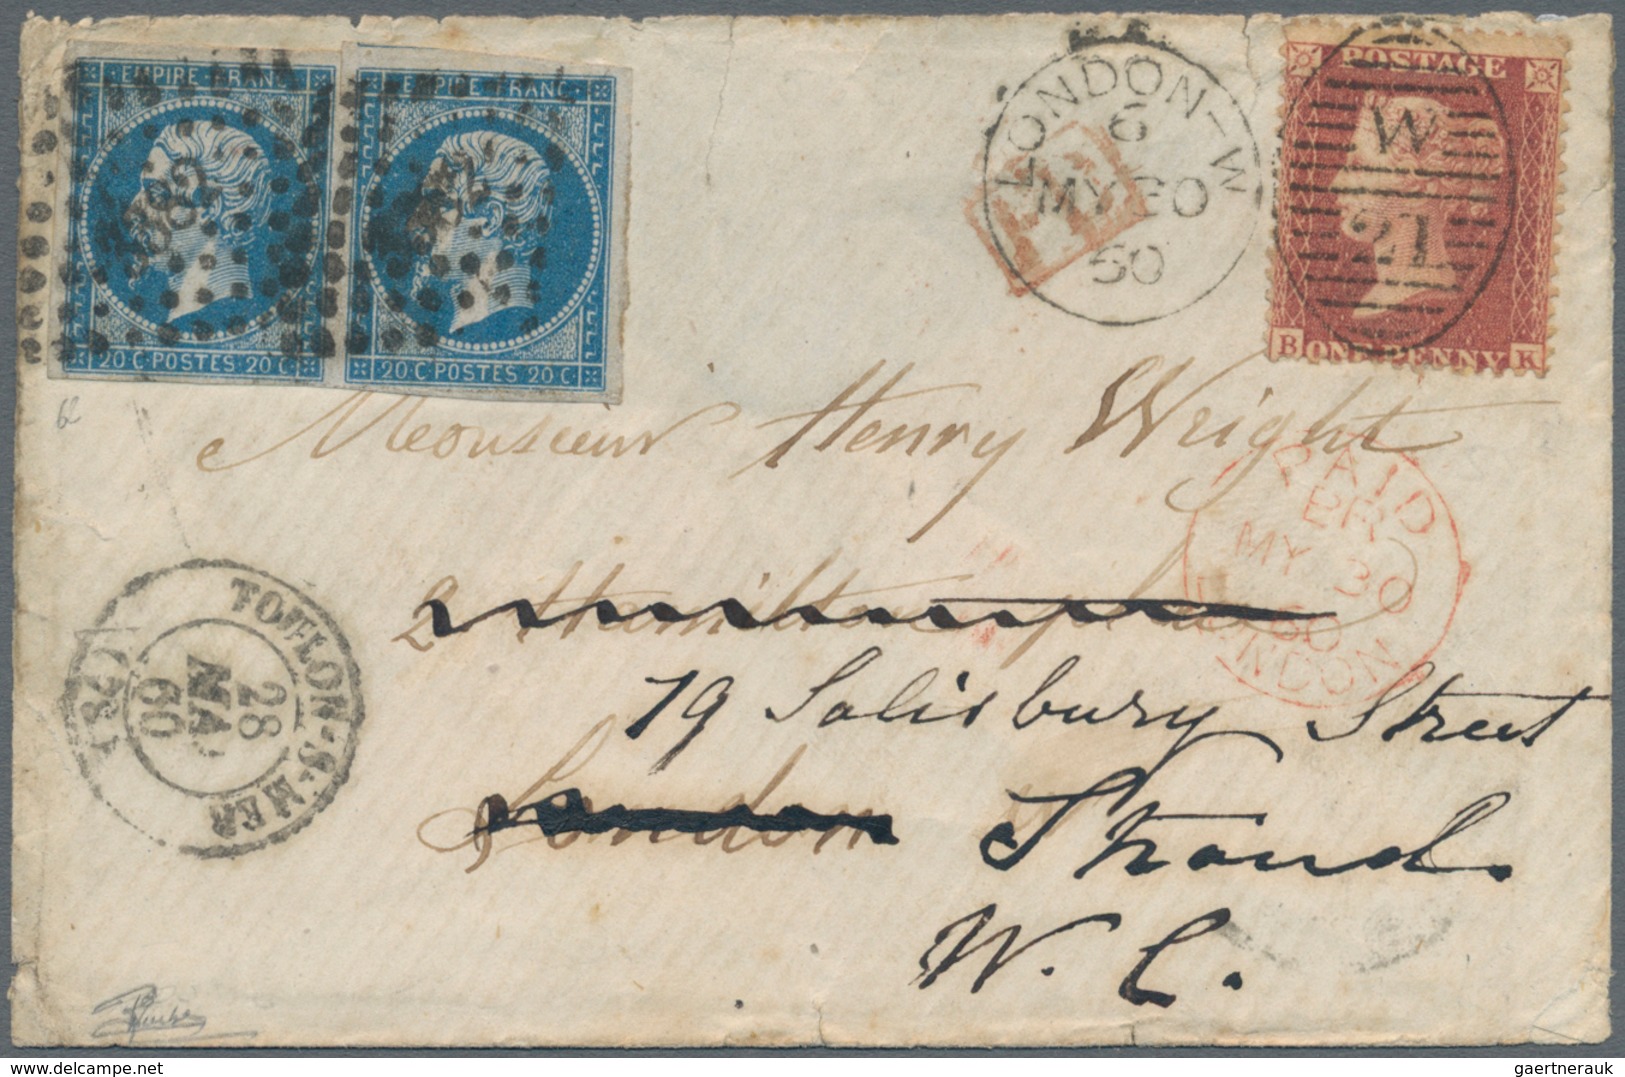 EMPIRE FRANC
20 C. POSTES 20 C.
EMPIRE FRANC
20 C. POSTES 20 C.
LONDON-W
6
MY 30
60
POSTAGE
W
21
B ONE PENNY K
Monsieur Henry Wright
PAID
BR
MY 30
60
LONDON
2 Hamilton place
79 Salisbury Street
London
Strand.
W. C.
TOULON-S-MER
28
MAI
60
(78)
62
gaertnerauk